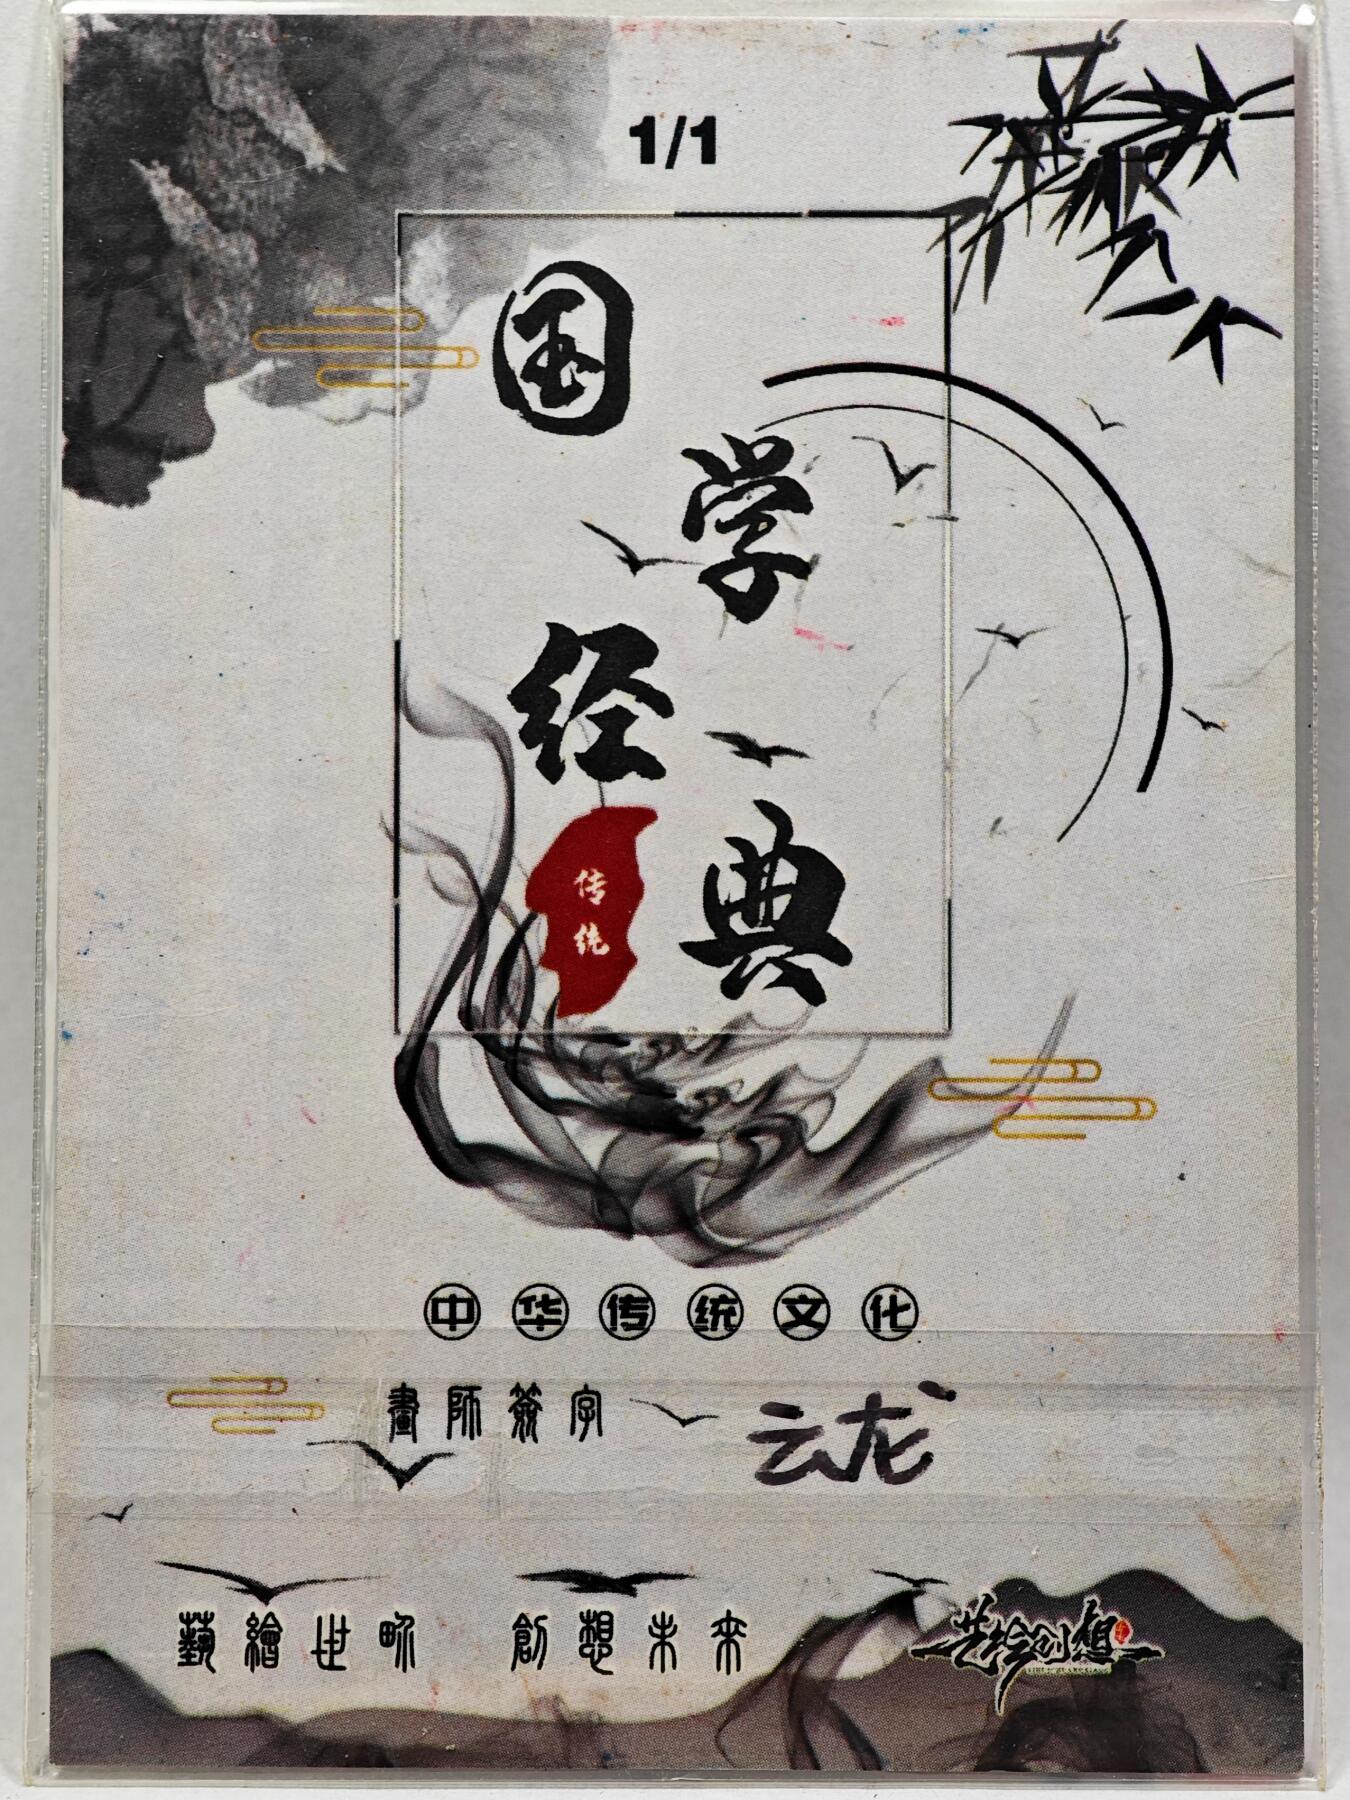 1/1
国学经典
传统
中华传统文化
畫師簽字 云龙
藝繪世界 創想未来
艺绘创想